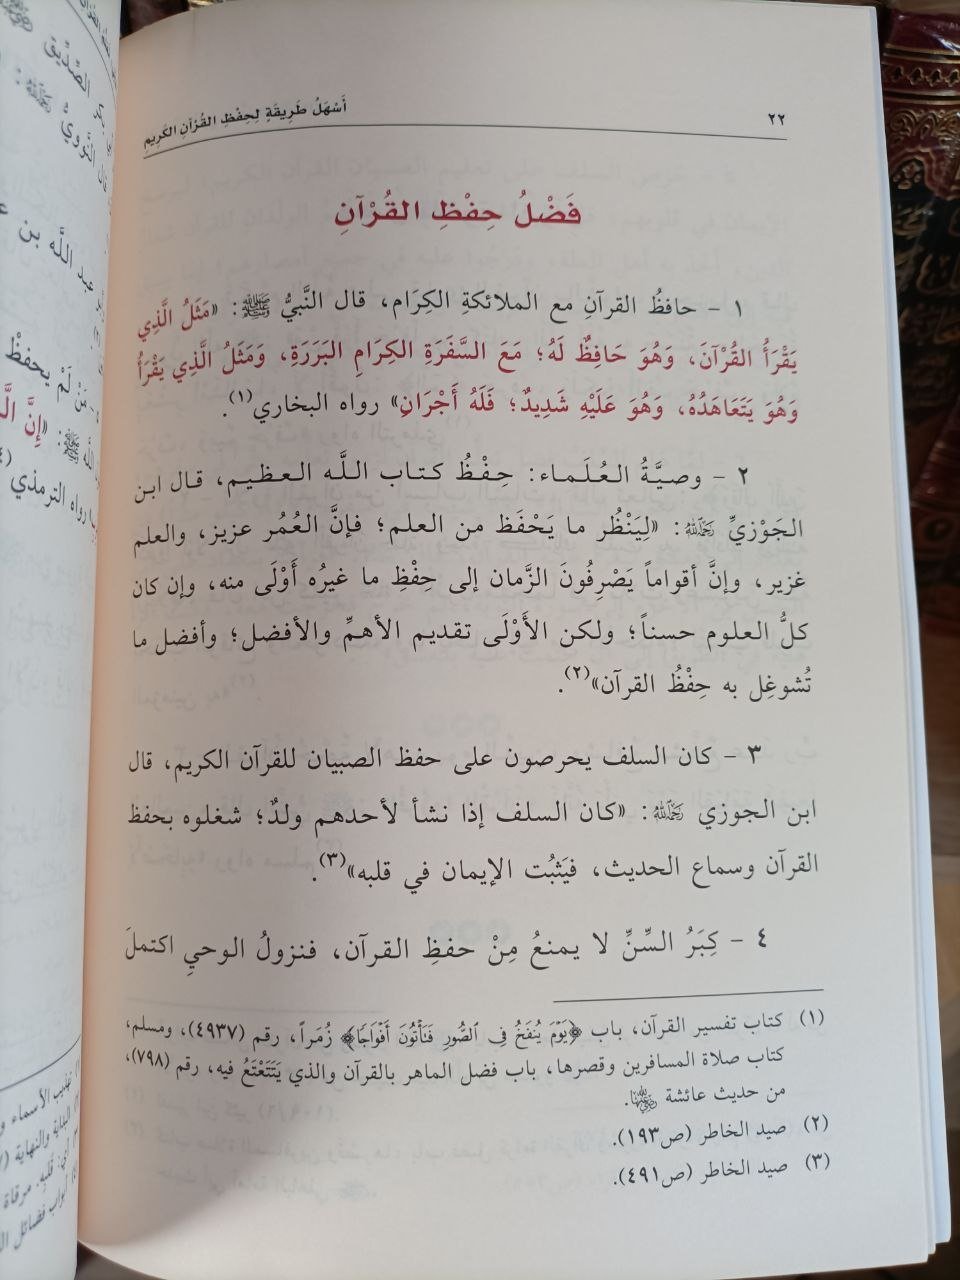 ٢٢
أَسْهَلُ طَرِيقَةٍ لِحِفْظِ القُرْآنِ الكَرِيمِ
فَضْلُ حِفْظِ القُرْآنِ
١ - حافظُ القرآنِ مع الملائكةِ الكِرَام، قال النَّبيُّ ﷺ: «مَثَلُ الَّذِي
يَقْرَأُ القُرْآنَ، وَهُوَ حَافِظٌ لَهُ؛ مَعَ السَّفَرَةِ الكِرَامِ البَرَرَةِ، وَمَثَلُ الَّذِي يَقْرَأُ
وَهُوَ يَتَعَاهَدُهُ، وَهُوَ عَلَيْهِ شَدِيدٌ؛ فَلَهُ أَجْرَانِ» رواه البخاري(١).
٢ - وصيَّةُ العُلَماء: حِفْظُ كتاب اللَّه العظيم، قال ابن
الجَوْزيِّ رَحِمَهُ اللَّهُ: «لِيَنْظُر ما يَحْفَظ من العلم؛ فإنَّ العُمُر عزيز، والعلم
غزير، وإنَّ أقواماً يَصْرِفُونَ الزَّمان إلى حِفْظِ ما غيرُه أَوْلَى منه، وإن كان
كلُّ العلوم حسناً؛ ولكن الأَوْلَى تقديم الأهمِّ والأفضل؛ وأفضل ما
تُشوغِل به حِفْظُ القرآن»(٢).
٣ - كان السلف يحرصون على حفظ الصبيان للقرآن الكريم، قال
ابن الجوزي رَحِمَهُ اللَّهُ: «كان السلف إذا نشأ لأحدهم ولدٌ؛ شغلوه بحفظ
القرآن وسماع الحديث، فيَثبُت الإيمان في قلبه»(٣).
٤ - كِبَرُ السِّنِّ لا يمنعُ مِنْ حفظِ القرآن، فنزولُ الوحيِ اكتملَ
(١) كتاب تفسير القرآن، باب ﴿يَوْمَ يُنفَخُ فِى ٱلصُّورِ فَتَأْتُونَ أَفْوَاجًا﴾ زُمَراً، رقم (٤٩٣٧)، ومسلم،
كتاب صلاة المسافرين وقصرها، باب فضل الماهر بالقرآن والذي يَتَتَعْتَعُ فيه، رقم (٧٩٨)،
من حديث عائشة رَضِيَ اللَّهُ عَنْهَا.
(٢) صيد الخاطر (ص١٩٣).
(٣) صيد الخاطر (ص٤٩١).